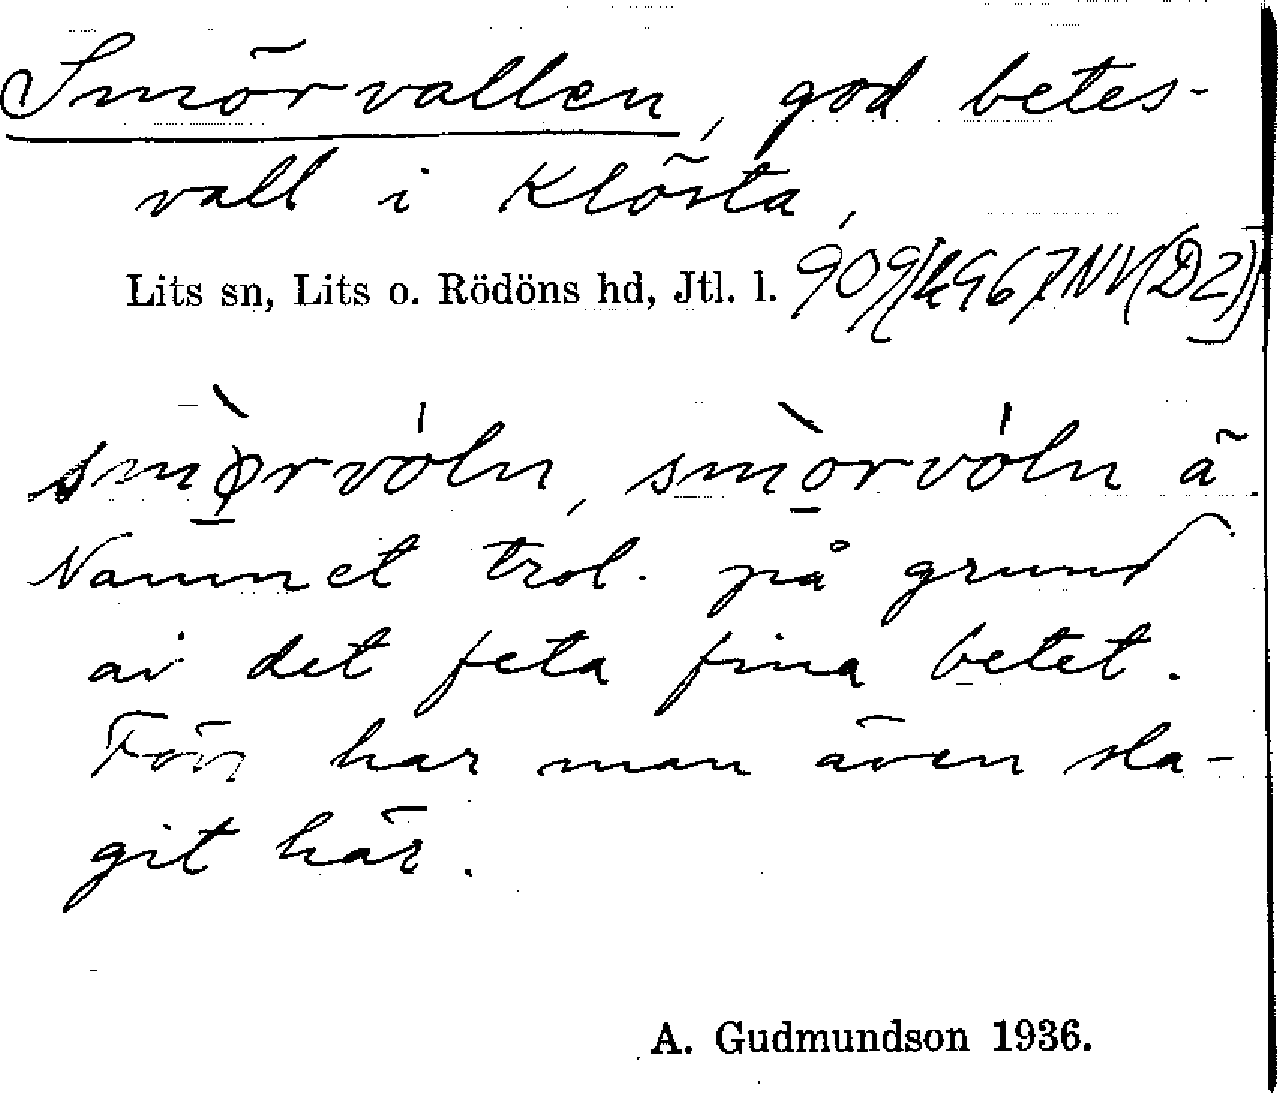 Smörvallen, god betes-
vall i Klösta,
Lits sn, Lits o. Rödöns hd, Jtl. l.
smørvóln, smòrvóln ä
Namnet trol. på grund
av det feta fina betet.
Förr har man även sla-
git här.
A. Gudmundson 1936.